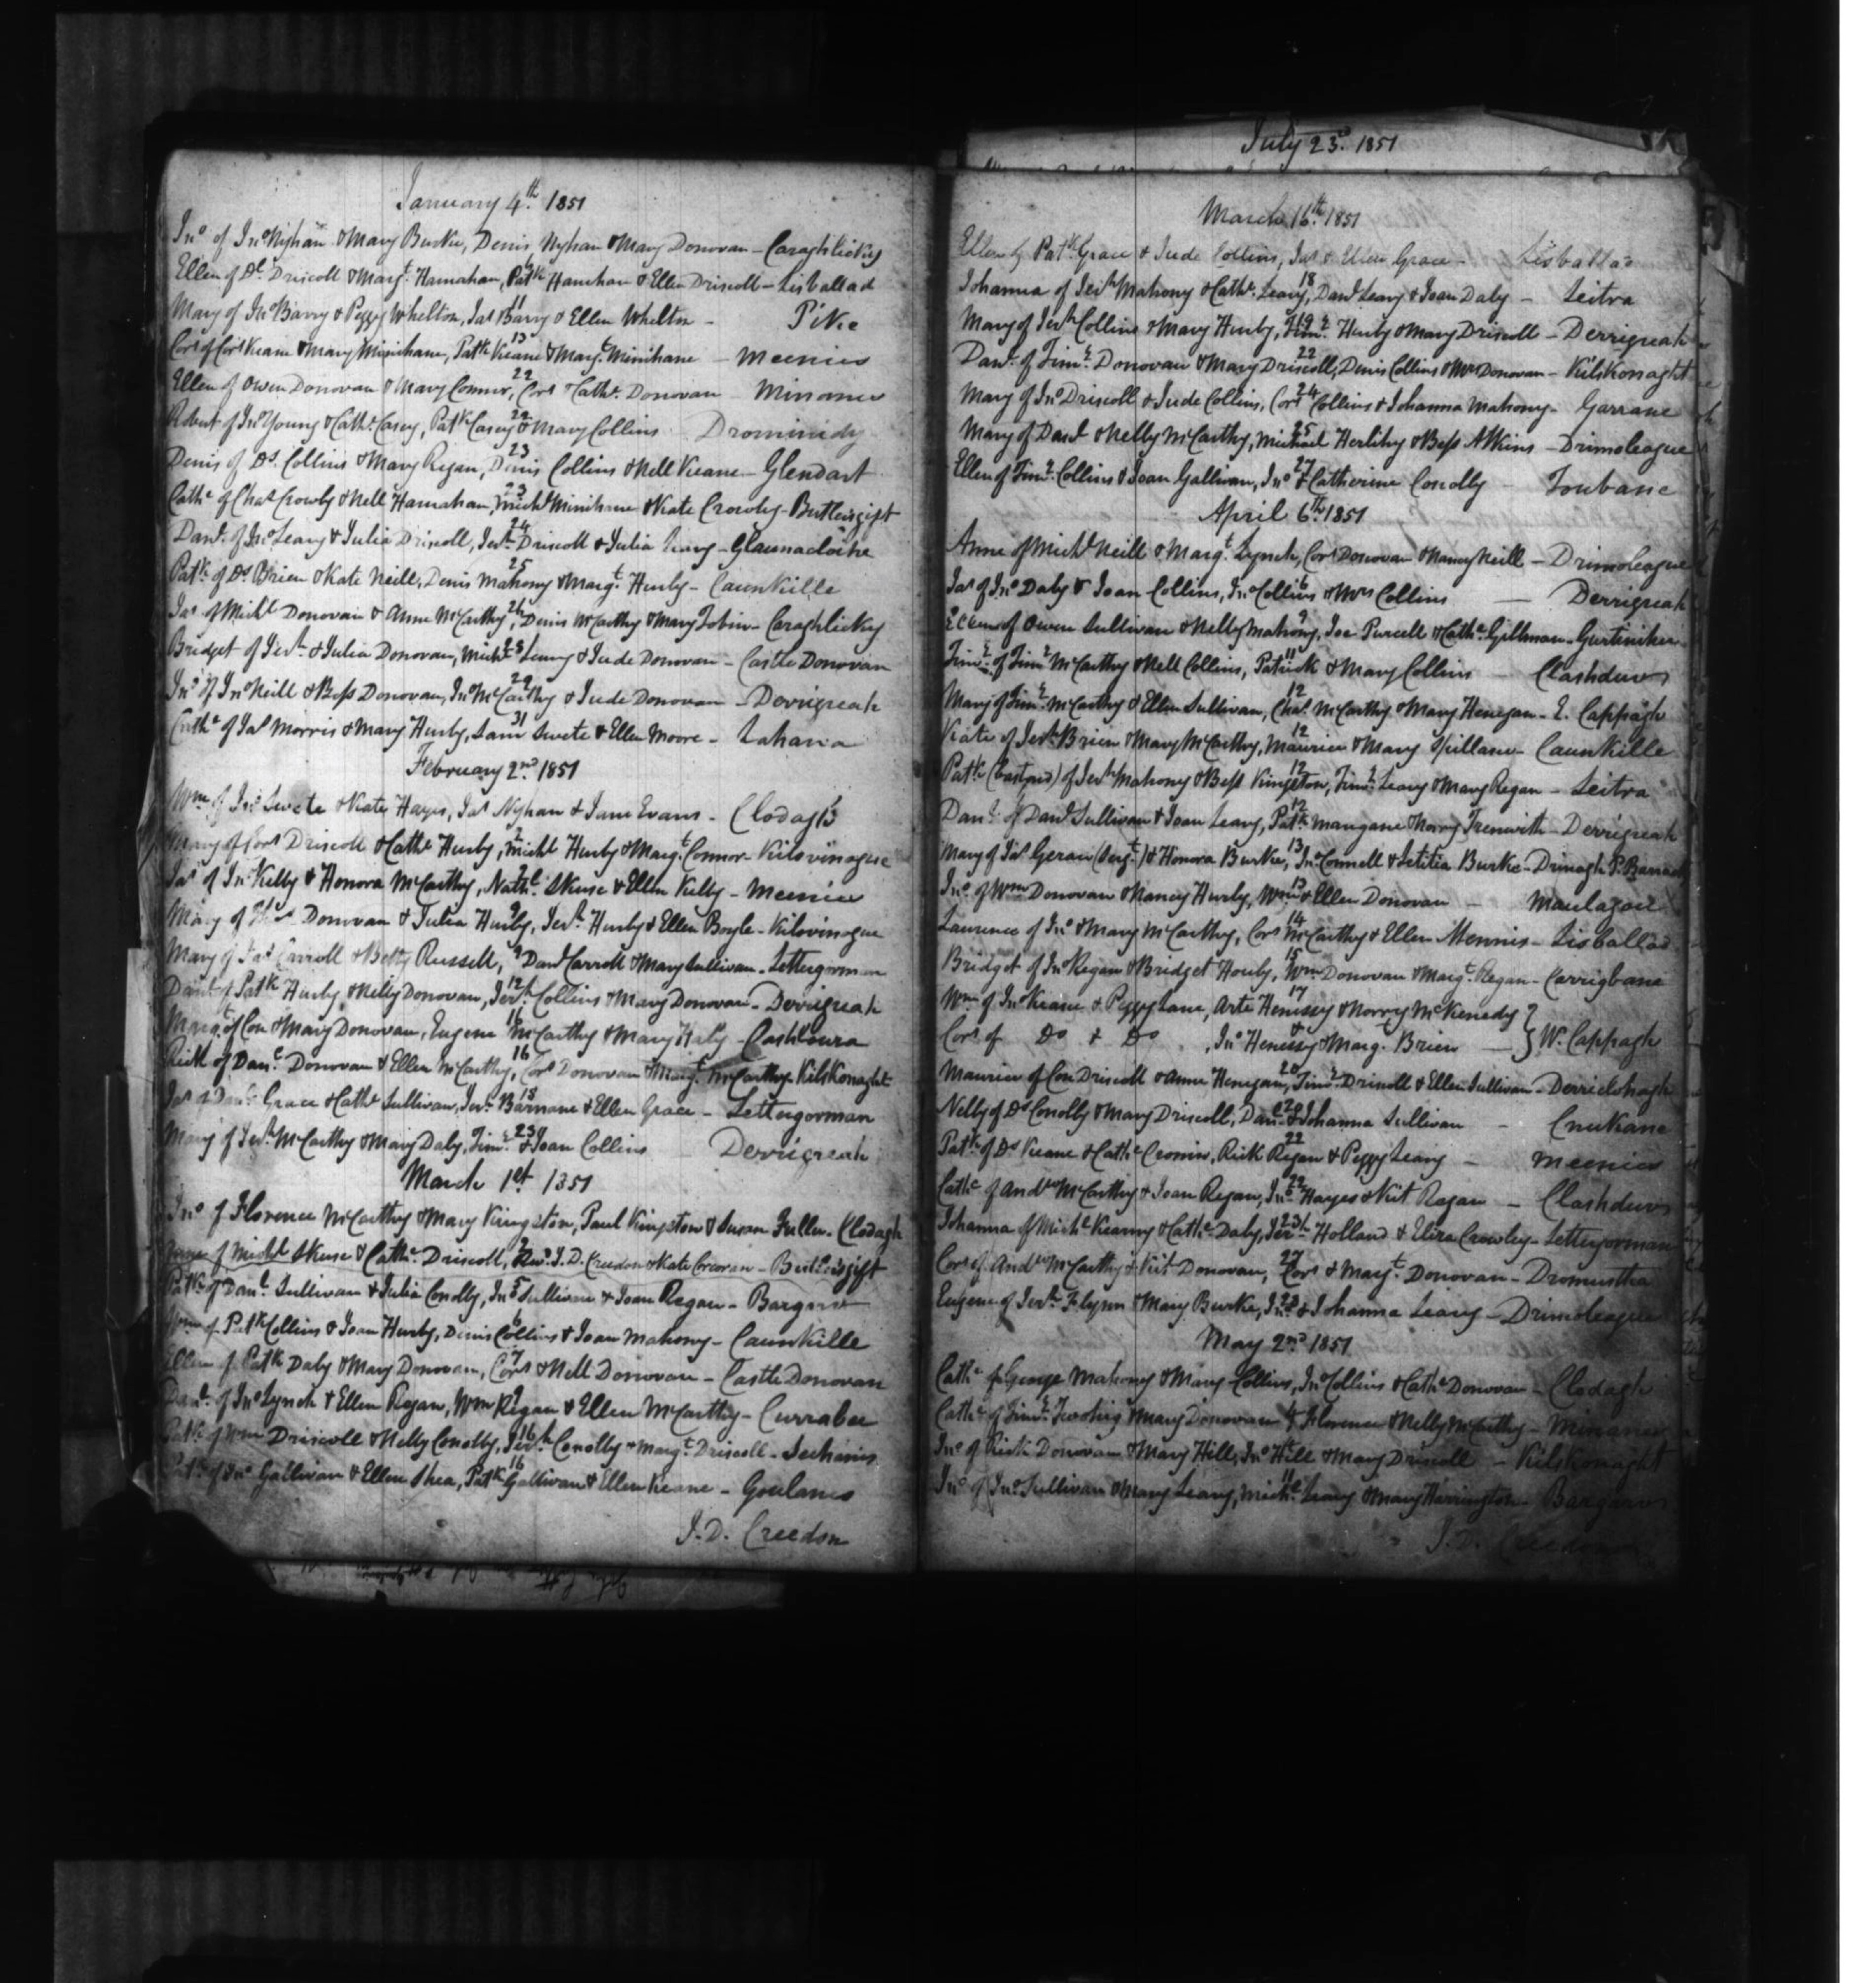 January 4th. 1851
Jno of Jno Nyhan & Mary Burke, Denis Nyhan & Mary Donovan - Caraghlicky
6
Ellen of Dl. Driscoll & Margt. Hanrahan, Patk Hanrahan & Ellen Driscoll - Lisballad
11
Mary of Jno Barry & Peggy Whelton, Jas Barry & Ellen Whelton - Pike
13
Cors of Cors Keane & Mary Minihane, Patk Keane & Margt. Minihane - Meenies
22
Ellen of Owen Donovan & Mary Connor, Cors & Cathe. Donovan - Minanes
22
Robert of Jno Young & Cathe. Casey, Patk Casey & Mary Collins Drominidy
23
Denis of Ds. Collins & Mary Regan, Denis Collins & Nell Keane - Glendart
23
Cathe of Chas Crowly & Nell Hanrahan, Michl Minihane & Kate Crowley - Butlersgift
24
Danl. of Jno Leary & Julia Driscoll, Jerh. Driscoll & Julia Leary - Glaunacloihe
25
Patk. of Ds Brien & Kate Neill, Denis Mahony & Margt. Hurly - Caunkille
26
Jas of Michl Donovan & Anne McCarthy, Denis McCarthy & Mary Tobin - Caraghlicky
28
Bridget of Jerh. & Julia Donovan, Michl Leary & Jude Donovan - Castle Donovan
29
Jno of Jno Neill & Bess Donovan, Jno McCarthy & Jude Donovan - Derrigreah
31
Cathe of Jas Morris & Mary Hurly, Saml Swete & Ellen Moore - Lahana
February 2nd 1851
Wm of Jno Swete & Kate Hayes, Jas Nyhan & Jane Evans - Clodagh
2
Mary of Cors Driscoll & Cathe Hurly, Michl Hurly & Margt. Connor - Kilovinogue
Jas of Jno Kelly & Honora McCarthy, Nathl Skuse & Ellen Kelly - Meenies
9
Mary of Donovan & Julia Hurly, Jerh. Hurly & Ellen Boyle - Kilovinogue
9
Mary of Jas Carroll & Betty Russell, Danl Carroll & Mary Sullivan - Lettergorman
12
Danl of Patk Hurly & Nelly Donovan, Jerh. Collins & Mary Donovan - Derrigreah
16
Margt. of Con & Mary Donovan, Eugene McCarthy & Mary Haly - Cashloura
16
Rick of Danl. Donovan & Ellen McCarthy, Cors Donovan & Margt. McCarthy - Kilskonaght
18
Jas of Danl. Grace & Cathe Sullivan, Jerh. Barnane & Ellen Grace - Lettergorman
23
Mary of Jerh McCarthy & Mary Daly, Timy. & Joan Collins Derrigreah
March 1st 1851
Jno of Florence McCarthy & Mary Kingston, Paul Kingston & Susan Fuller - Clodagh
2
of Michl Skuse & Cathe. Driscoll, Revd. J.D. Creedon & Kate Corcoran - Butlersgift
5
Patk of Danl. Sullivan & Julia Conolly, Jno Sullivan & Joan Regan - Bargarus
6
Wm of Patk Collins & Joan Hurly, Denis Collins & Joan Mahony - Caunkille
7
Ellen of Patk Daly & Mary Donovan, Cors & Nell Donovan - Castle Donovan
9
Danl. of Jno Lynch & Ellen Regan, Wm Regan & Ellen McCarthy - Currabee
16
Patk of Wm Driscoll & Nelly Conolly, Jerh. Conolly & Margt. Driscoll - Inchinis
16
of Jno Gallivan & Ellen Shea, Patk Gallivan & Ellen Keane - Goulanes
J.D. Creedon
July 23rd. 1851
March 16th. 1851
Ellen of Patk Grace & Jude Collins, Jas & Ellen Grace - Lisballad
18
Johanna of Jerh Mahony & Cathe. Leary, Danl Leary & Joan Daly - Leitra
19
Mary of Jerh Collins & Mary Hurly, Timy. Hurly & Mary Driscoll - Derrigreah
22
Danl. of Timy. Donovan & Mary Driscoll, Denis Collins & Mrs Donovan - Kilskonaght
24
Mary of Jno Driscoll & Jude Collins, Cors Collins & Johanna Mahony - Garrane
25
Mary of Danl & Nelly McCarthy, Michael Herlihy & Bess Atkins - Drimoleague
27
Ellen of Timy. Collins & Joan Gallivan, Jno & Catherine Conolly - Toubane
April 6th. 1851
Anne of Michl Neill & Margt. Lynch, Cors Donovan & Nancy Neill - Drimoleague
6
Jas of Jno Daly & Joan Collins, Jno Collins & Mrs Collins - Derrigreah
9
Ellen of Owen Sullivan & Nelly Mahony, Joe Purcell & Cathe. Gillman - Gurtiniher
11
Timy. of Timy McCarthy & Nell Collins, Patrick & Mary Collins - Clashduv
12
Mary of Timy. McCarthy & Ellen Sullivan, Chas. McCarthy & Mary Henegan - E. Cappagh
12
Kate of Jerh Brien & Mary McCarthy, Maurice & Mary Spillane - Caunkille
12
Patk (bastard) of Jerh Mahony & Bess Kingston, Timy. Leary & Mary Regan - Leitra
12
Danl. of Danl Sullivan & Joan Leary, Patk. Mangane & Norry Trenwith - Derrigreah
13
Mary of Jas Geran (Sergt.) & Honora Burke, Jno Connell & Letitia Burke - Drinagh P. Barrack
13
Jno. of Wm Donovan & Nancy Hurly, Wm & Ellen Donovan - Maulazau
14
Laurence of Jno & Mary McCarthy, Cors McCarthy & Ellen Mennis - Lisballad
15
Bridget of Jno Regan & Bridget Hourly, Wm Donovan & Margt. Regan - Carrigbana
17
Wm of Jno Keane & Peggy Lane, Arte Henessy & Norry McKenedy }
Cors of Do & Do , Jno Henessy & Marg. Brien - } W. Cappagh
20
Maurice of Con Driscoll & Anne Henegan, Timy. Driscoll & Ellen Sullivan - Derriclohagh
20
Nelly of Ds Conolly & Mary Driscoll, Danl. & Johanna Sullivan - Cnukane
22
Patk of Ds Keane & Cathe Cronin, Rick Regan & Peggy Leary - Meenies
22
Cathe of Andw McCarthy & Joan Regan, Jno Hayes & Kit Regan - Clashduv
23
Johanna of Michl Kearny & Cathe. Daly, Jerh Holland & Eliza Crowley - Lettergorman
27
Cors of Andw McCarthy & Kit Donovan, Cors & Margt. Donovan - Dromustha
28
Eugene of Jerh. Flynn & Mary Burke, Jno & Johanna Leary - Drimoleague
May 2nd 1851
Cathe of George Mahony & Mary Collins, Jno Collins & Cathe Donovan - Clodagh
4
Cathe of Timy. Twohig & Mary Donovan, Florence & Nelly McCarthy - Minanes
Jno of Rick Donovan & Mary Hill, Jno Hill & Mary Driscoll - Kilskonaght
11
Jno of Jno Sullivan & Mary Leary, Michl. Leary & Mary Harrington - Bargarus
J.D. Creedon